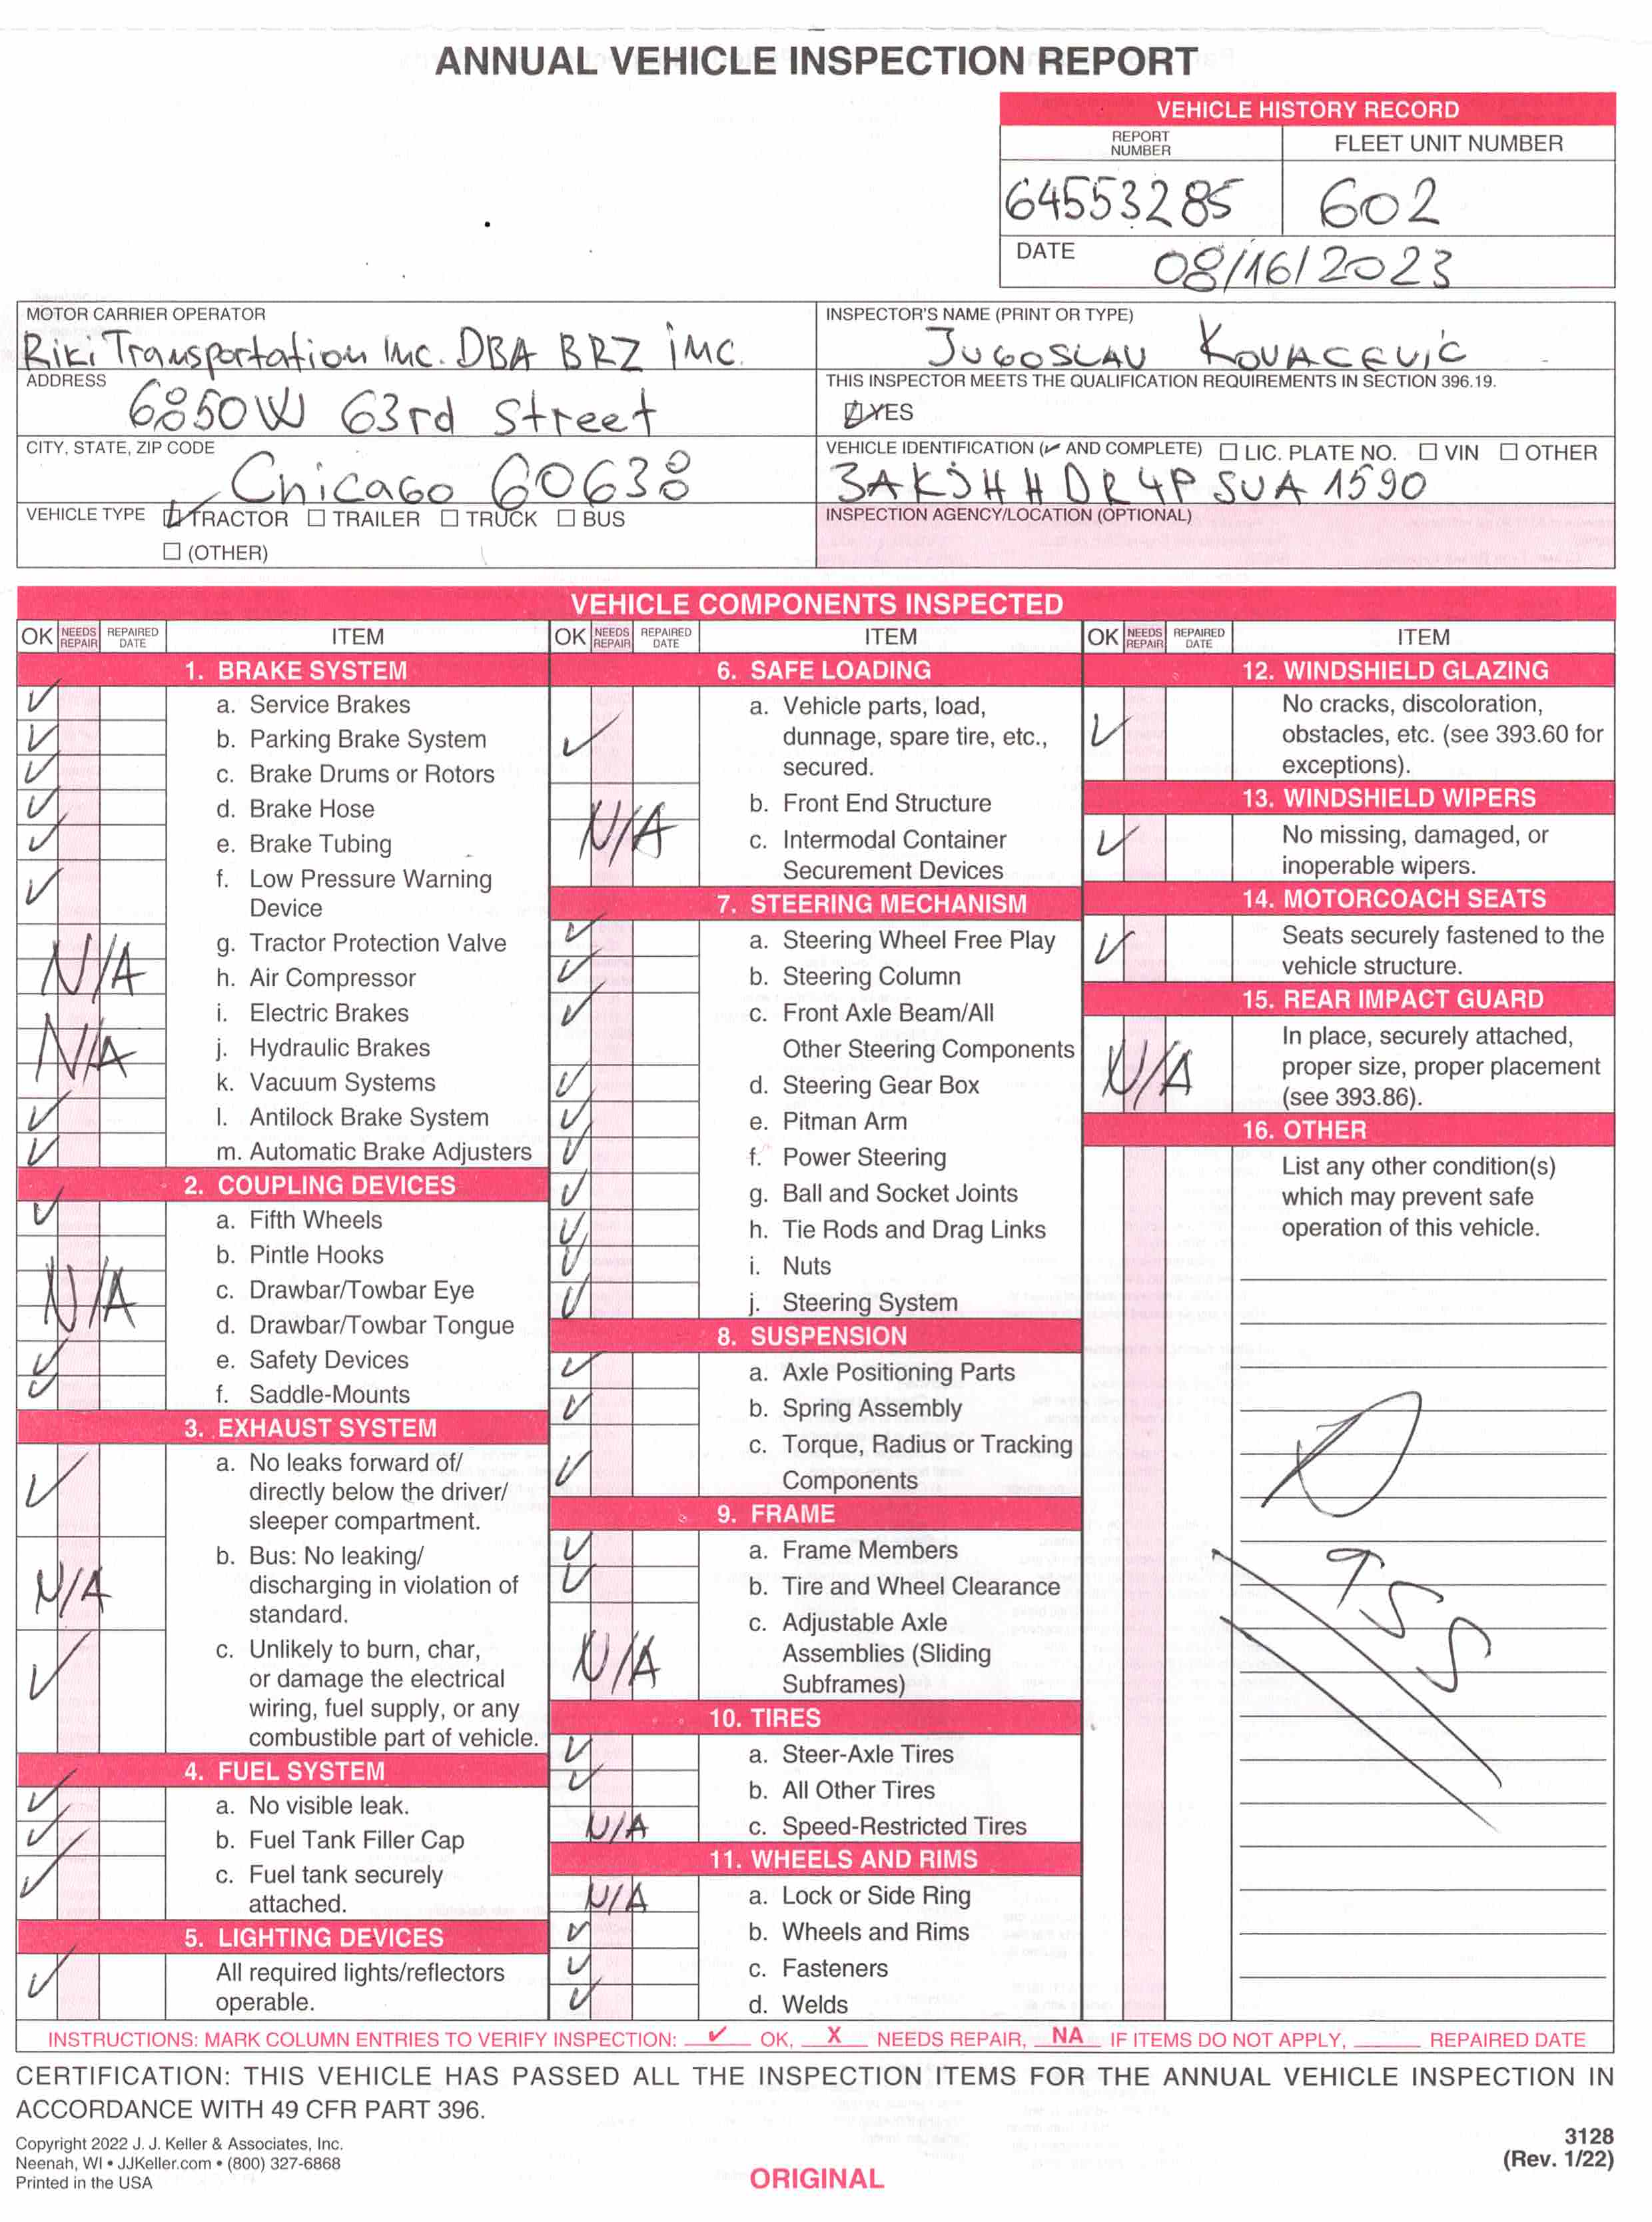 ANNUAL VEHICLE INSPECTION REPORT
VEHICLE HISTORY RECORD
REPORT NUMBER
FLEET UNIT NUMBER
64553285
602
DATE 08/16/2023
MOTOR CARRIER OPERATOR
Riki Transportation Inc. DBA BRZ inc.
INSPECTOR'S NAME (PRINT OR TYPE)
Jugoslav Kovacevic
ADDRESS
6850W 63rd Street
THIS INSPECTOR MEETS THE QUALIFICATION REQUIREMENTS IN SECTION 396.19.
☑ YES
CITY, STATE, ZIP CODE
Chicago 60638
VEHICLE IDENTIFICATION (✓ AND COMPLETE) ☐ LIC. PLATE NO. ☐ VIN ☐ OTHER
3AKJHHDR4PSUA1590
VEHICLE TYPE ☑ TRACTOR ☐ TRAILER ☐ TRUCK ☐ BUS
☐ (OTHER)
INSPECTION AGENCY/LOCATION (OPTIONAL)
VEHICLE COMPONENTS INSPECTED
OK NEEDS REPAIR REPAIRED DATE ITEM
1. BRAKE SYSTEM
✓ a. Service Brakes
✓ b. Parking Brake System
✓ c. Brake Drums or Rotors
✓ d. Brake Hose
✓ e. Brake Tubing
✓ f. Low Pressure Warning
Device
g. Tractor Protection Valve
N/A h. Air Compressor
i. Electric Brakes
N/A j. Hydraulic Brakes
k. Vacuum Systems
✓ l. Antilock Brake System
✓ m. Automatic Brake Adjusters
2. COUPLING DEVICES
✓ a. Fifth Wheels
b. Pintle Hooks
N/A c. Drawbar/Towbar Eye
d. Drawbar/Towbar Tongue
✓ e. Safety Devices
✓ f. Saddle-Mounts
3. EXHAUST SYSTEM
✓ a. No leaks forward of/
directly below the driver/
sleeper compartment.
N/A b. Bus: No leaking/
discharging in violation of
standard.
✓ c. Unlikely to burn, char,
or damage the electrical
wiring, fuel supply, or any
combustible part of vehicle.
4. FUEL SYSTEM
✓ a. No visible leak.
✓ b. Fuel Tank Filler Cap
✓ c. Fuel tank securely
attached.
5. LIGHTING DEVICES
✓ All required lights/reflectors
operable.
OK NEEDS REPAIR REPAIRED DATE ITEM
6. SAFE LOADING
✓ a. Vehicle parts, load,
dunnage, spare tire, etc.,
secured.
b. Front End Structure
N/A c. Intermodal Container
Securement Devices
7. STEERING MECHANISM
✓ a. Steering Wheel Free Play
✓ b. Steering Column
✓ c. Front Axle Beam/All
Other Steering Components
✓ d. Steering Gear Box
✓ e. Pitman Arm
✓ f. Power Steering
✓ g. Ball and Socket Joints
✓ h. Tie Rods and Drag Links
✓ i. Nuts
✓ j. Steering System
8. SUSPENSION
✓ a. Axle Positioning Parts
✓ b. Spring Assembly
✓ c. Torque, Radius or Tracking
Components
9. FRAME
✓ a. Frame Members
✓ b. Tire and Wheel Clearance
N/A c. Adjustable Axle
Assemblies (Sliding
Subframes)
10. TIRES
✓ a. Steer-Axle Tires
✓ b. All Other Tires
N/A c. Speed-Restricted Tires
11. WHEELS AND RIMS
N/A a. Lock or Side Ring
✓ b. Wheels and Rims
✓ c. Fasteners
✓ d. Welds
OK NEEDS REPAIR REPAIRED DATE ITEM
12. WINDSHIELD GLAZING
✓ No cracks, discoloration,
obstacles, etc. (see 393.60 for
exceptions).
13. WINDSHIELD WIPERS
✓ No missing, damaged, or
inoperable wipers.
14. MOTORCOACH SEATS
✓ Seats securely fastened to the
vehicle structure.
15. REAR IMPACT GUARD
N/A In place, securely attached,
proper size, proper placement
(see 393.86).
16. OTHER
List any other condition(s)
which may prevent safe
operation of this vehicle.
INSTRUCTIONS: MARK COLUMN ENTRIES TO VERIFY INSPECTION: ✓ OK, X NEEDS REPAIR, NA IF ITEMS DO NOT APPLY, ____ REPAIRED DATE
CERTIFICATION: THIS VEHICLE HAS PASSED ALL THE INSPECTION ITEMS FOR THE ANNUAL VEHICLE INSPECTION IN
ACCORDANCE WITH 49 CFR PART 396.
Copyright 2022 J. J. Keller & Associates, Inc.
Neenah, WI • JJKeller.com • (800) 327-6868
Printed in the USA
ORIGINAL
3128
(Rev. 1/22)